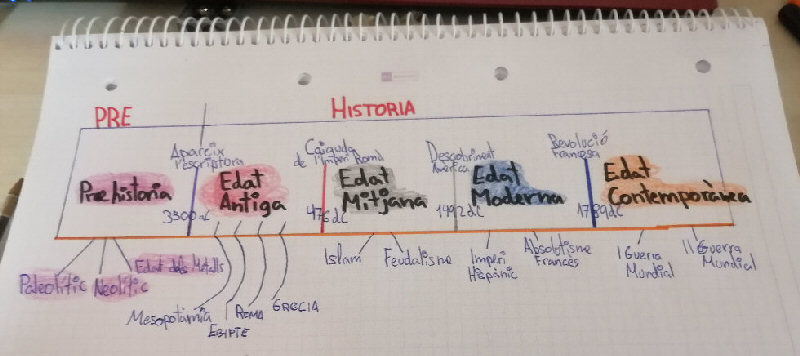 PRE
HISTORIA
Apareix
l'escriptora
Caiguda
de l'Imperi Romà
Descobriment
Amèrica
Revolució
Francesa
Prehistoria
Edat
Antiga
Edat
Mitjana
Edat
Moderna
Edat
Contemporànea
3300 aC
476 dC
1492 dC
1789 dC
Paleolític
Neolític
Edat dels Metalls
Mesopotàmia
EGIPTE
ROMA
GRECIA
Islam
Feudalisme
Imperi
Hispànic
Absolutisme
Francés
I Guerra
Mundial
II Guerra
Mundial